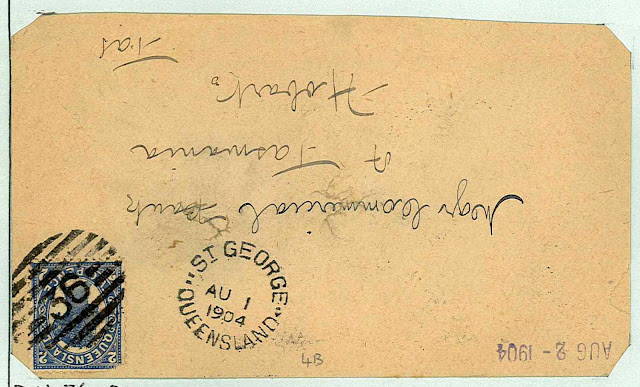 Mgr Commercial Bank
of Tasmania
Hobart
Tas
36
QUEENSLAND
2
2
"ST GEORGE"
AU 1
1904
QUEENSLAND
4B
AUG 2 - 1904